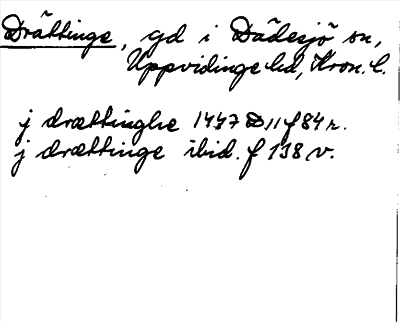 Drättinge, gd i Dädesjö sn,
Uppvidinge hd, Kron. l.
j drættinghe 1447 D 11 f 84 r.
j drættinge ibid. f 138 v.